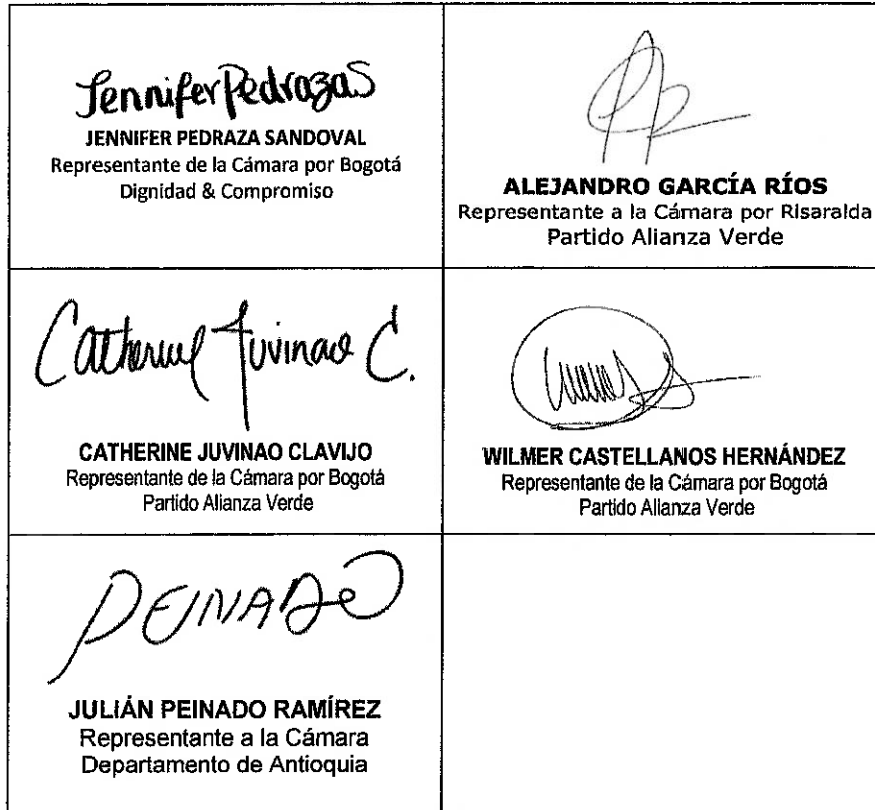 Jennifer Pedraza S
JENNIFER PEDRAZA SANDOVAL
Representante de la Cámara por Bogotá
Dignidad & Compromiso
ALEJANDRO GARCÍA RÍOS
Representante a la Cámara por Risaralda
Partido Alianza Verde
Catherine Juvinao C.
CATHERINE JUVINAO CLAVIJO
Representante de la Cámara por Bogotá
Partido Alianza Verde
WILMER CASTELLANOS HERNÁNDEZ
Representante de la Cámara por Bogotá
Partido Alianza Verde
PEINADO
JULIÁN PEINADO RAMÍREZ
Representante a la Cámara
Departamento de Antioquia